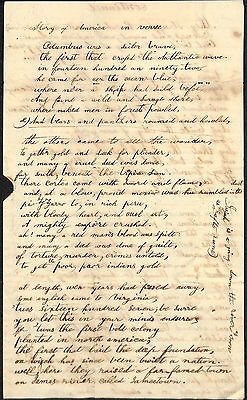 Story of America in verse
Columbus was a sailor brave,
the first that crost the Atlantic wave
in fourteen hundred and ninety-two,
he came far oer the ocean blue,
where neer a ship had sailed before
And found a wild and savage shore,
where naked men in forest prowled
And bears and panthers roamed and howled,
the others came to see the wonders,
to gather gold and look for plunder,
and many a cruel deed was done,
far south beneath the
There cortes came with sword and flame
and, at a blow,
pizarro to, in rich peru,
with bloody heart, and
A mighty empire crushed
Ah! many a red mans blood was spilt
and many a deed was done of guilt,
of torture, murder, crimes untold,
to get poor, poor indians gold
at length, when years had passed away,
the english came to Virginia,
twas Sixteen hundred Seven, be sure
you let this in your minds endure
twas the first bold colony
planted in north america,
the first that laid the deep foundation,
on which has since been builte a nation
well, here they raised a far-famed town
on James River called Jamestown.